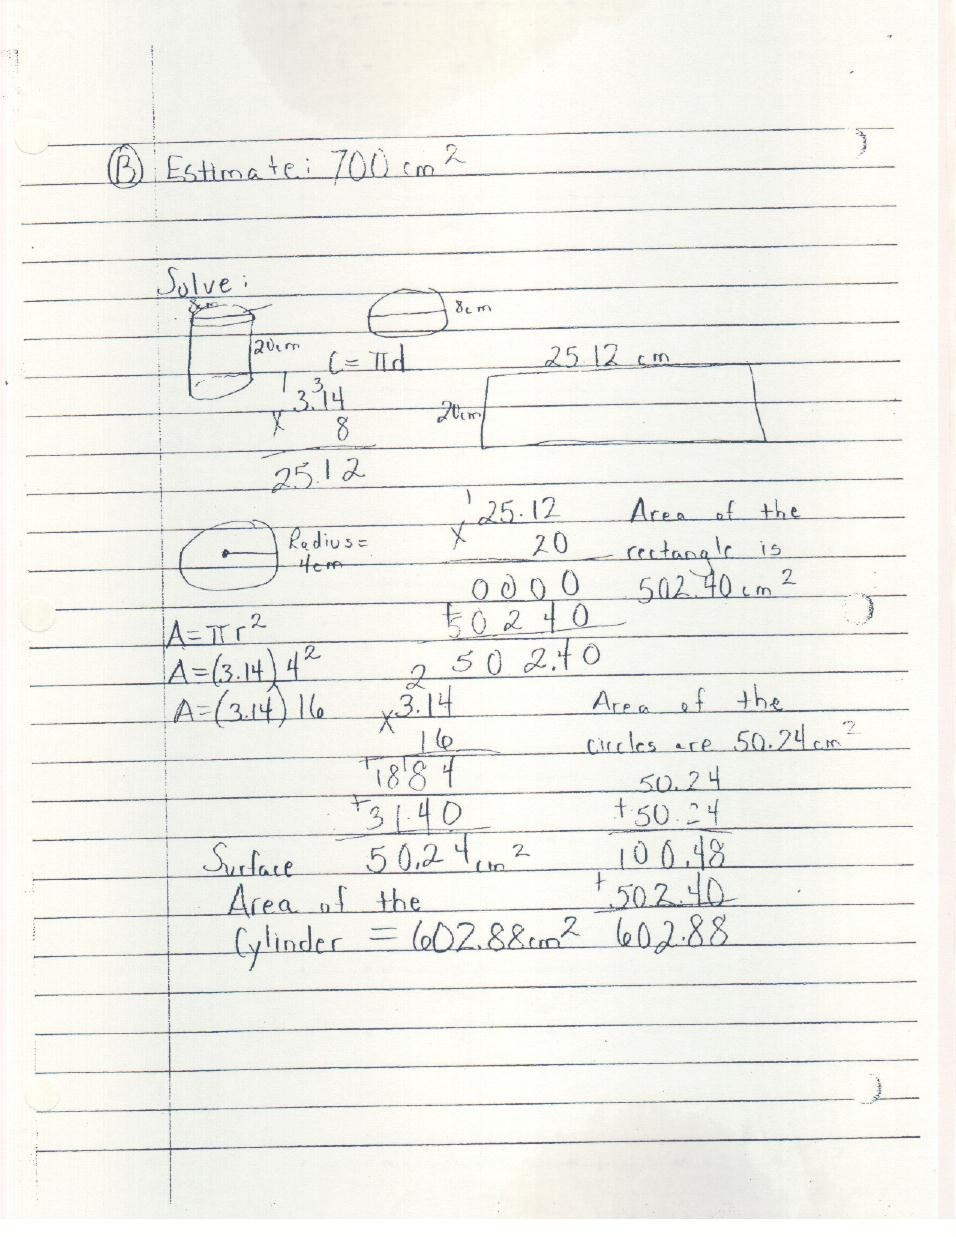 B Estimate: 700 cm²
Solve:
8cm
8cm
20cm
C = πd
25.12 cm
1 3
3.14
x 8
25.12
20cm
Radius =
4cm
1
25.12
x 20
0000
+50240
502.40
Area of the
rectangle is
502.40 cm²
A = πr²
A = (3.14) 4²
A = (3.14) 16
2
3.14
x 16
+1884
+31.40
50.24 cm²
Area of the
circles are 50.24 cm²
50.24
+50.24
100.48
+502.40
602.88
Surface
Area of the
Cylinder = 602.88cm²